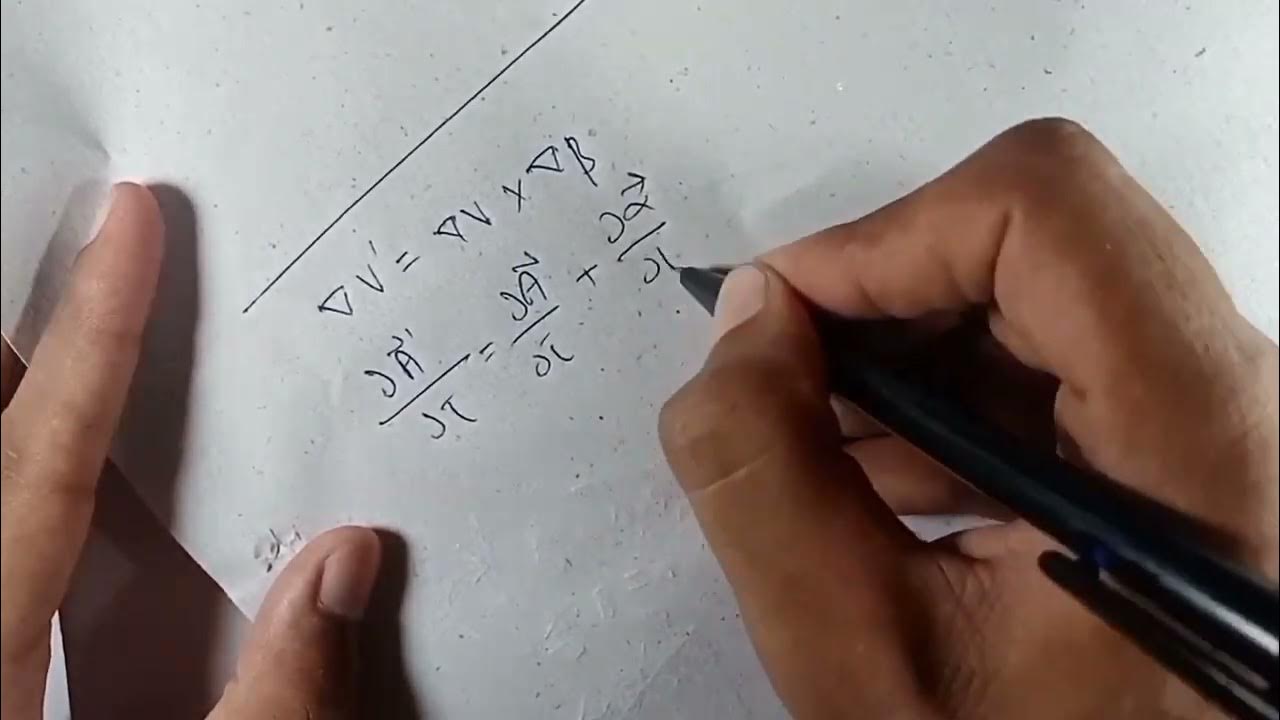 ∇V' = ∇V + ∇β
∂A⃗'/∂t = ∂A⃗/∂t + ∂α⃗/∂t